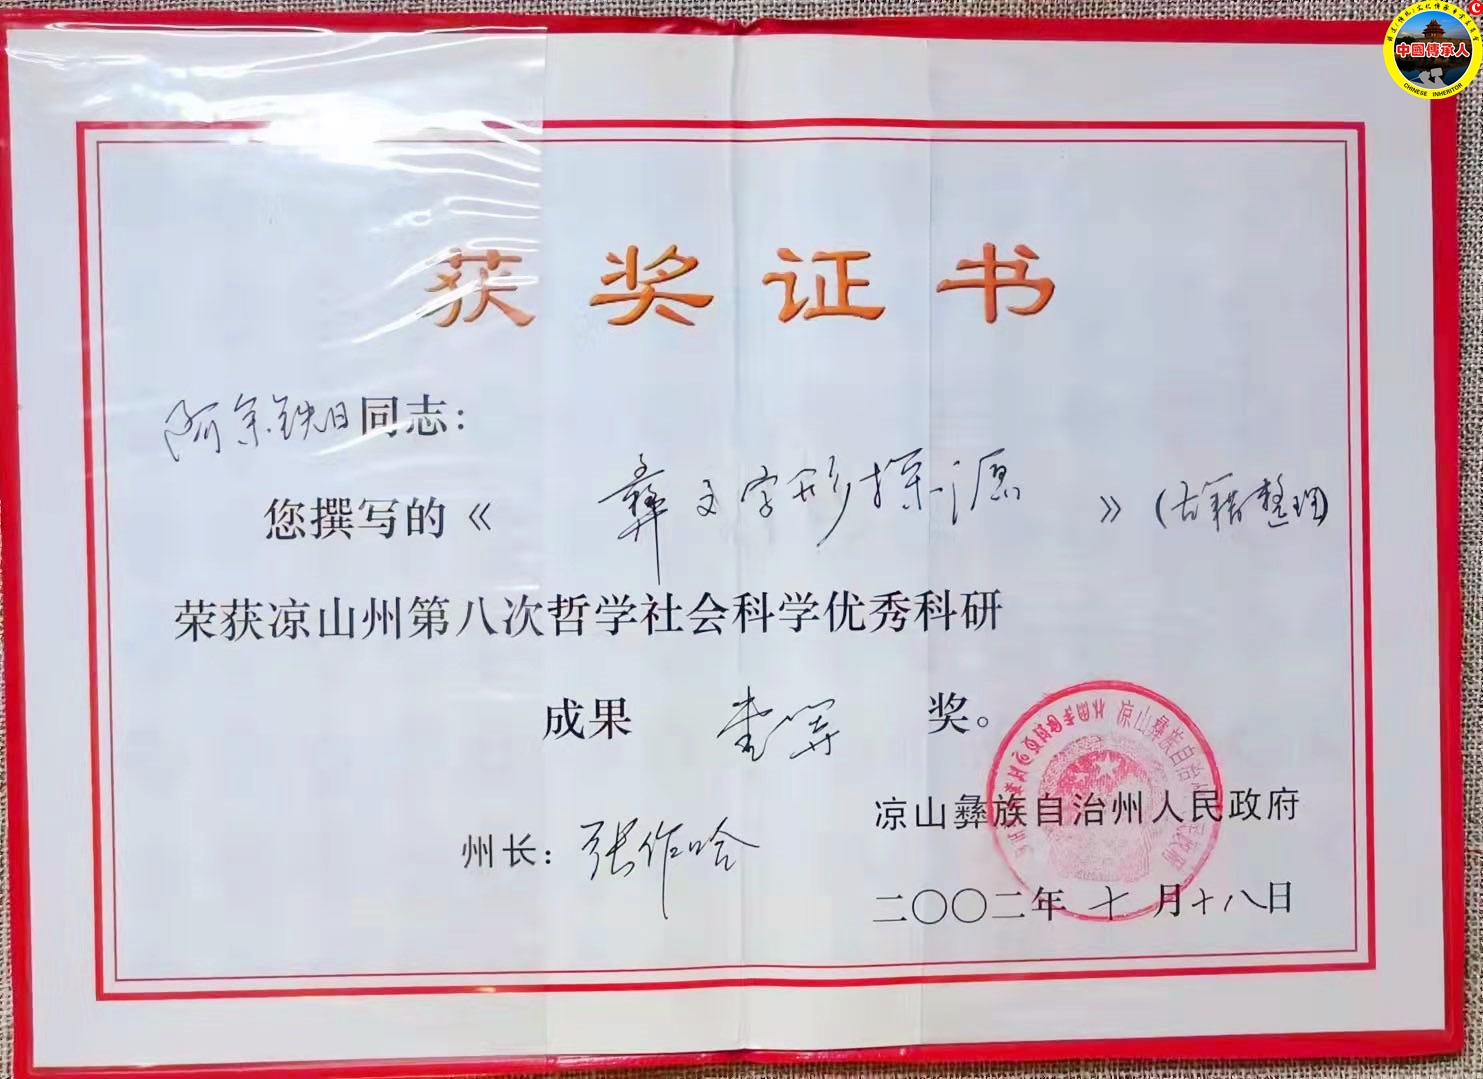 中國傳承人
CHINESE INHERITOR
获奖证书
阿余铁日同志：
您撰写的《彝文字形探源》（古籍整理）
荣获凉山州第八次哲学社会科学优秀科研
成果 壹等 奖。
凉山彝族自治州人民政府
州长：张作哈
二〇〇二年十月十八日